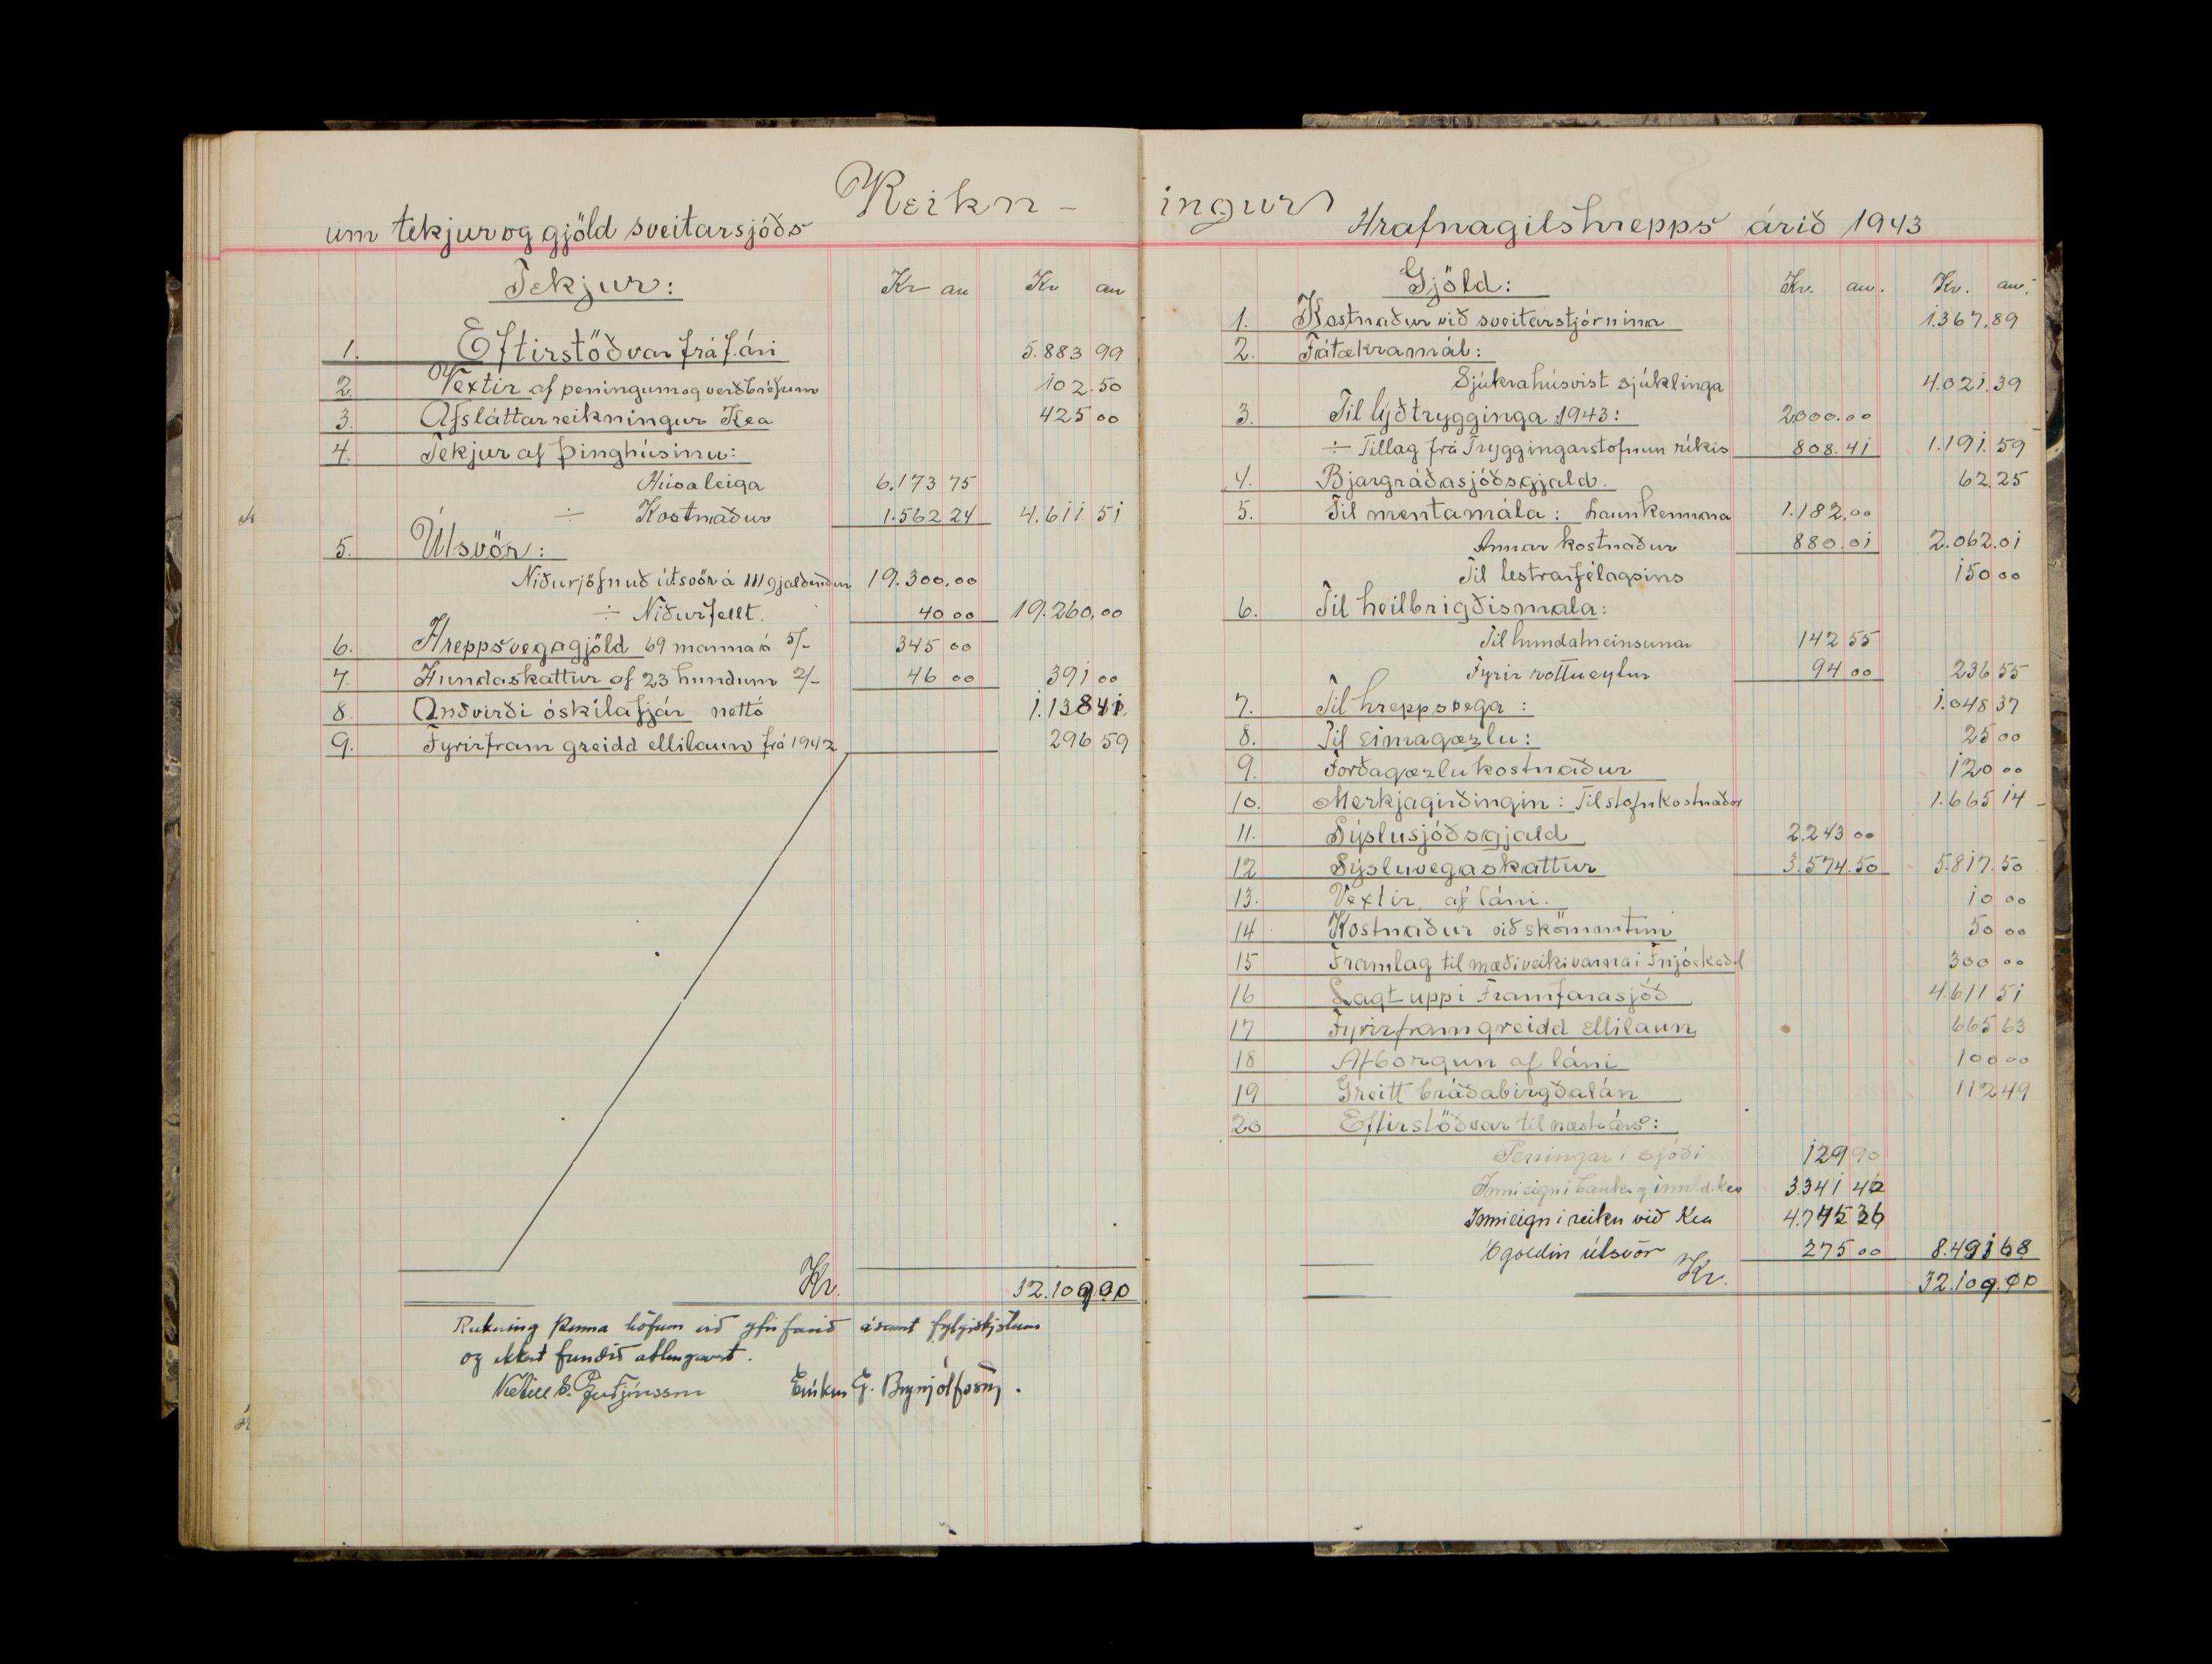 Reikn-
um tekjur og gjöld sveitarsjóðs
Tekjur:
Kr au Kr au
1. Eftirstöðvar frá f. ári 5.883 99
2. Vextir af peningum og verðbréfum 102.50
3. Afsláttarreikningur Kea 425 00
4. Tekjur af Þinghúsinu:
Húsaleiga 6.173 75
÷ Kostnaður 1.562 24 4.611 51
5. Útsvör:
Niðurjöfnuð útsvör á 111 gjaldendur 19.300,00
÷ Niðurfellt. 40 00 19.260,00
6. Hreppsvegagjöld 69 manna á 5/- 345 00
7. Hundaskattur af 23 hundum 2/- 46 00 391 00
8. Andvirði óskilafjár nettó 1.138 41
9. Fyrirfram greidd ellilaun frá 1942 296 59
Kr. 32.109.00
Reikning þenna höfum við yfirfarið ásamt fylgiskjölum
og ekkert fundið athugavert.
Ketill S. Guðjónsson Eiríkur G. Brynjólfsson.
ingur
Hrafnagilshrepps árið 1943
Gjöld:
Kr. au. Kr. au.
1. Kostnaður við sveitarstjórnina 1.367.89
2. Fátækramál:
Sjúkrahúsvist sjúklinga 4.021.39
3. Til lýðtrygginga 1943: 2000.00
÷ Tillag frá Tryggingarstofnun ríkis 808.41 1.191.59
4. Bjargráðasjóðsgjald. 62.25
5. Til mentamála: Laun kennara 1.182,00
Annar kostnaður 880.01 2.062.01
Til lestrarfélagsins 150 00
6. Til heilbrigðismala:
Til hundahreinsunar 142 55
Fyrir rottueytur 94 00 236 55
7. Til hreppsvega: 1.048 37
8. Til eimagæzlu: 25 00
9. Forðagæzlukostnaður 120 00
10. Merkjagirðingin: Til stofnkostnaðar 1.665 14
11. Sýslusjóðsgjald 2.243 00
12 Sýsluvegaskattur 3.574.50 5.817.50
13. Vextir af láni. 10 00
14 Kostnaður við skömmtun 50 00
15 Framlag til mæðiveikivarna í 300 00
16 Lagt upp í Framfarasjóð 4.611 51
17 Fyrirfram greidd ellilaun 665 63
18 Afborgun af láni 100 00
19 Greitt bráðabirgðalán 112 49
20 Eftirstöðvar til næsta árs:
Peningar í sjóði 129 90
Inneign í banka og innl.d. Kea 3341 42
Inneign í reikn við Kea 4.745 36
Ógoldin útsvör 275 00 8.491 68
Kr. 32.109.00